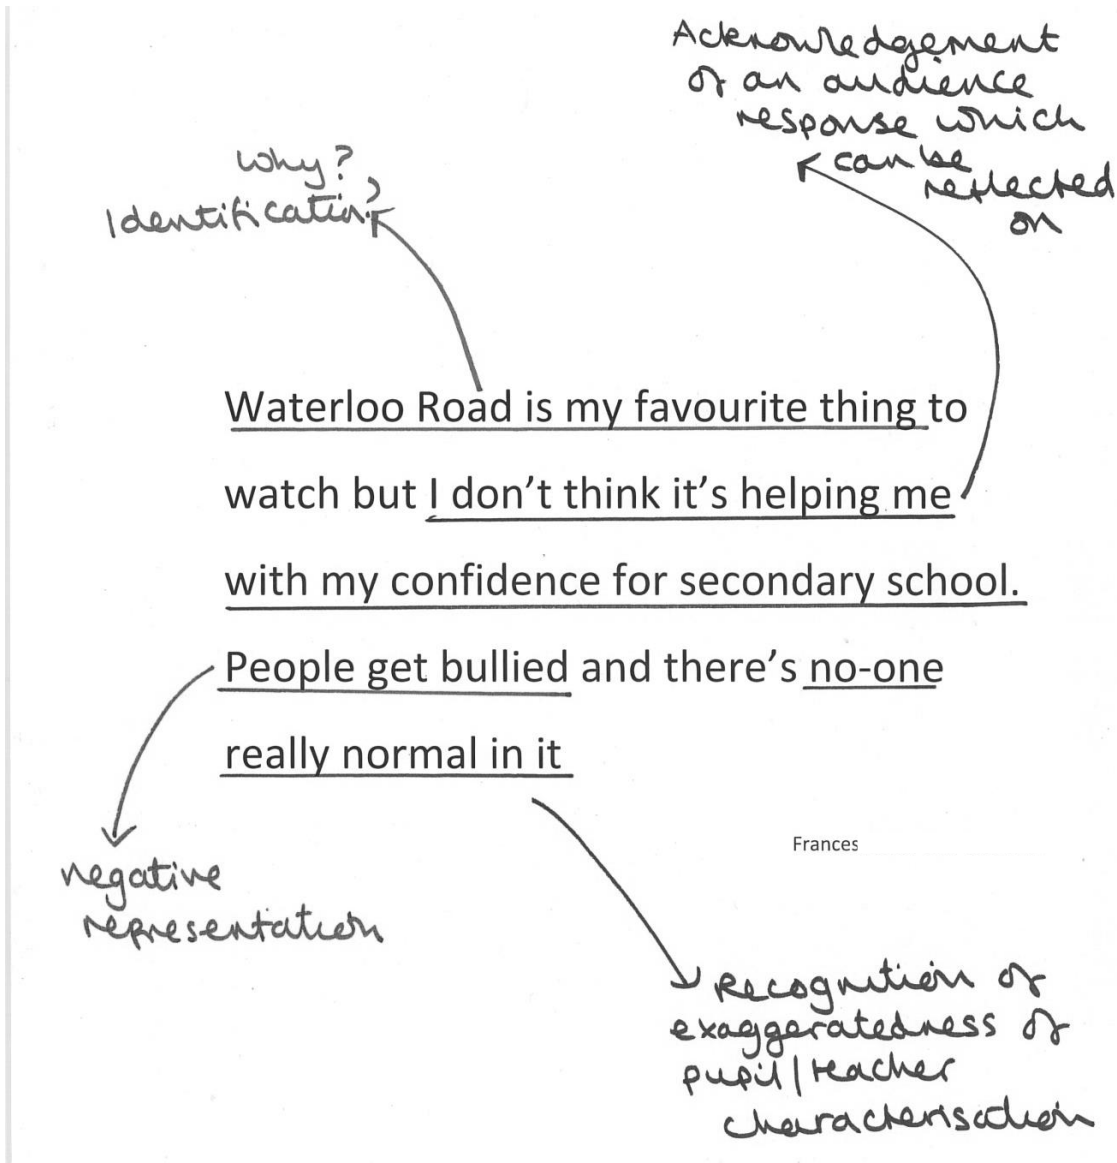 Acknowledgement
of an audience
response which
can be
reflected
on
why?
Identification?
Waterloo Road is my favourite thing to
watch but I don’t think it’s helping me
with my confidence for secondary school.
People get bullied and there’s no-one
really normal in it
Frances
negative
representation
Recognition of
exaggeratedness of
pupil/teacher
characterisation